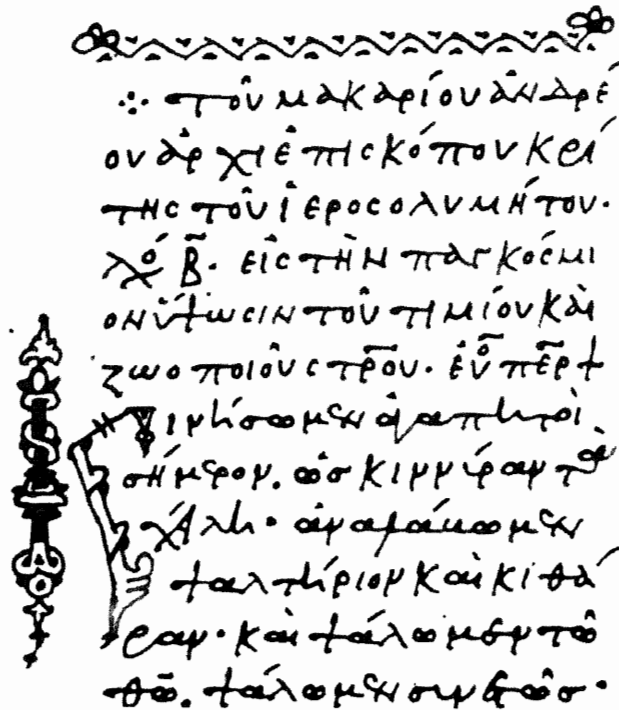 ∴ τοῦ μακαρίου ἀνδρέ
ου ἀρχιεπισκόπου κρί
της τοῦ ἱεροσολυμήτου·
λό Β̅· εἰς τὴν παγκόσμι
ον ὕψωσιν τοῦ τιμίου καὶ
ζωοποιοῦ στρ̅ου·
Κινήσωμεν ἀγαπητοὶ
σήμερον. ὡσ κιννύραν τὰ
χείλη· ἀναλάβωμεν
ψαλτήριον καὶ κιθά
ραν· καὶ ψάλωμεν τῶ
θῶ̅. ψάλωμεν συνετῶσ·